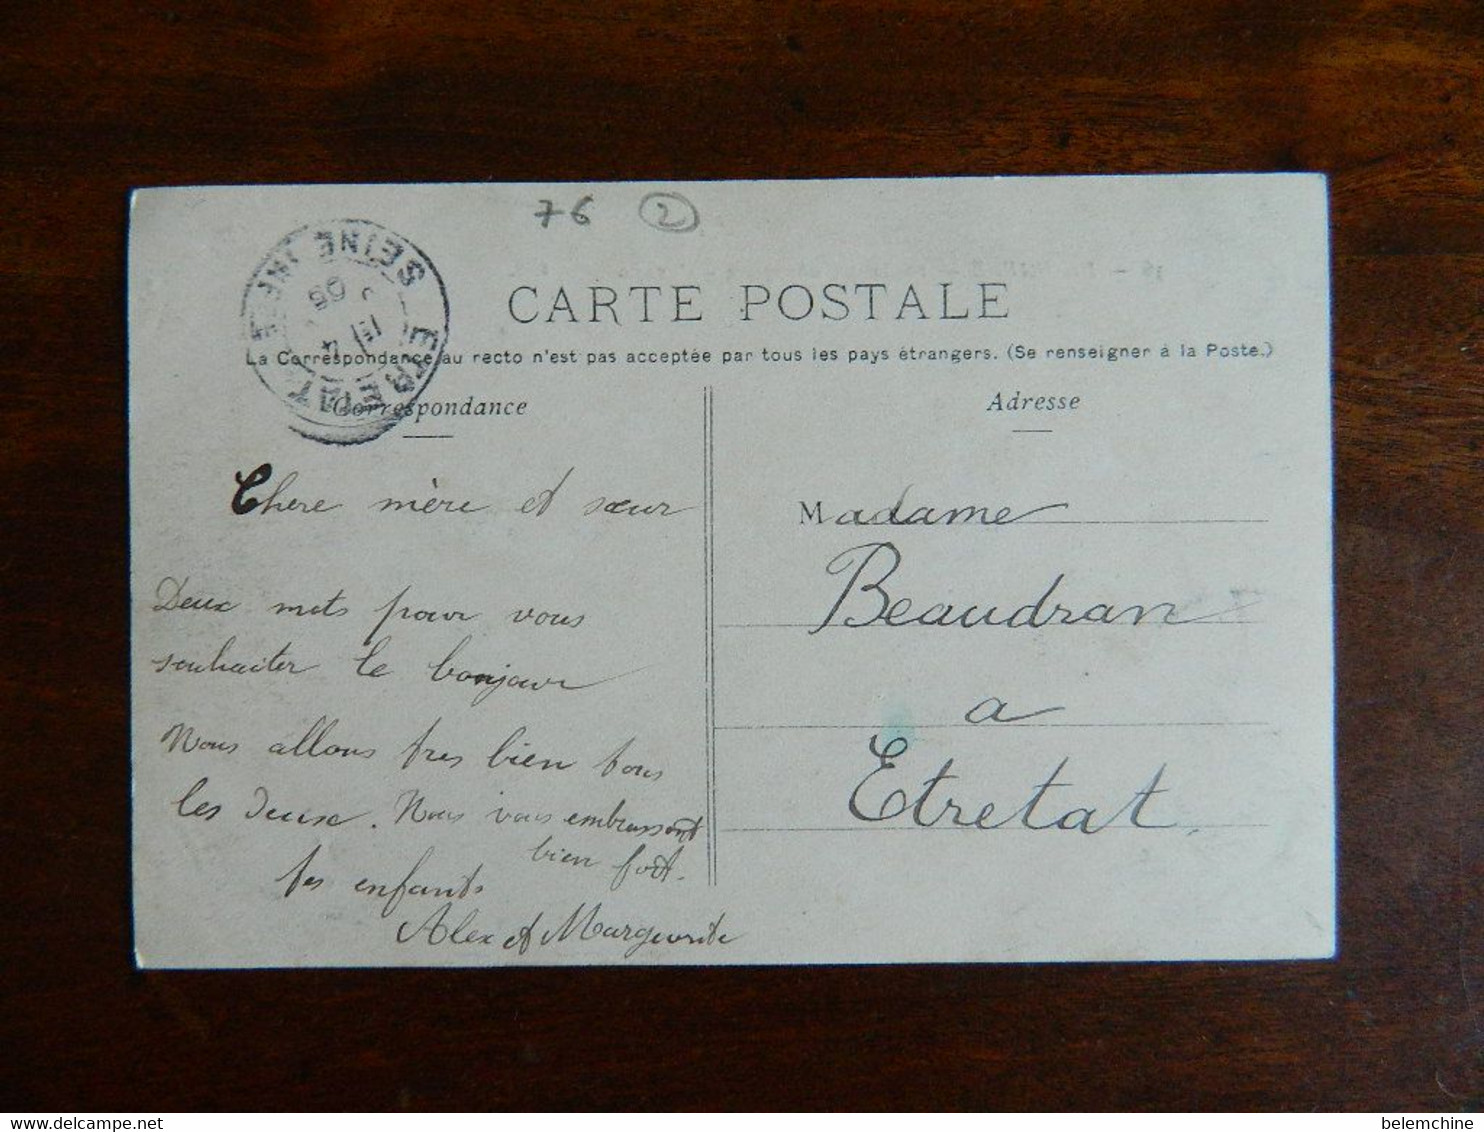 76 2
SEINE INFRE
ETRETAT
CARTE POSTALE
La Correspondance au recto n'est pas acceptée par tous les pays étrangers. (Se renseigner à la Poste.)
Correspondance
Chere mère et sœur
Deux mots pour vous
souhaiter le bonjour
Nous allons tres bien tous
les deux. Nous vous embrassont
bien fort.
tes enfants
Alex et Marguerite
Adresse
Madame
Beaudran
a
Etretat.
belemchine